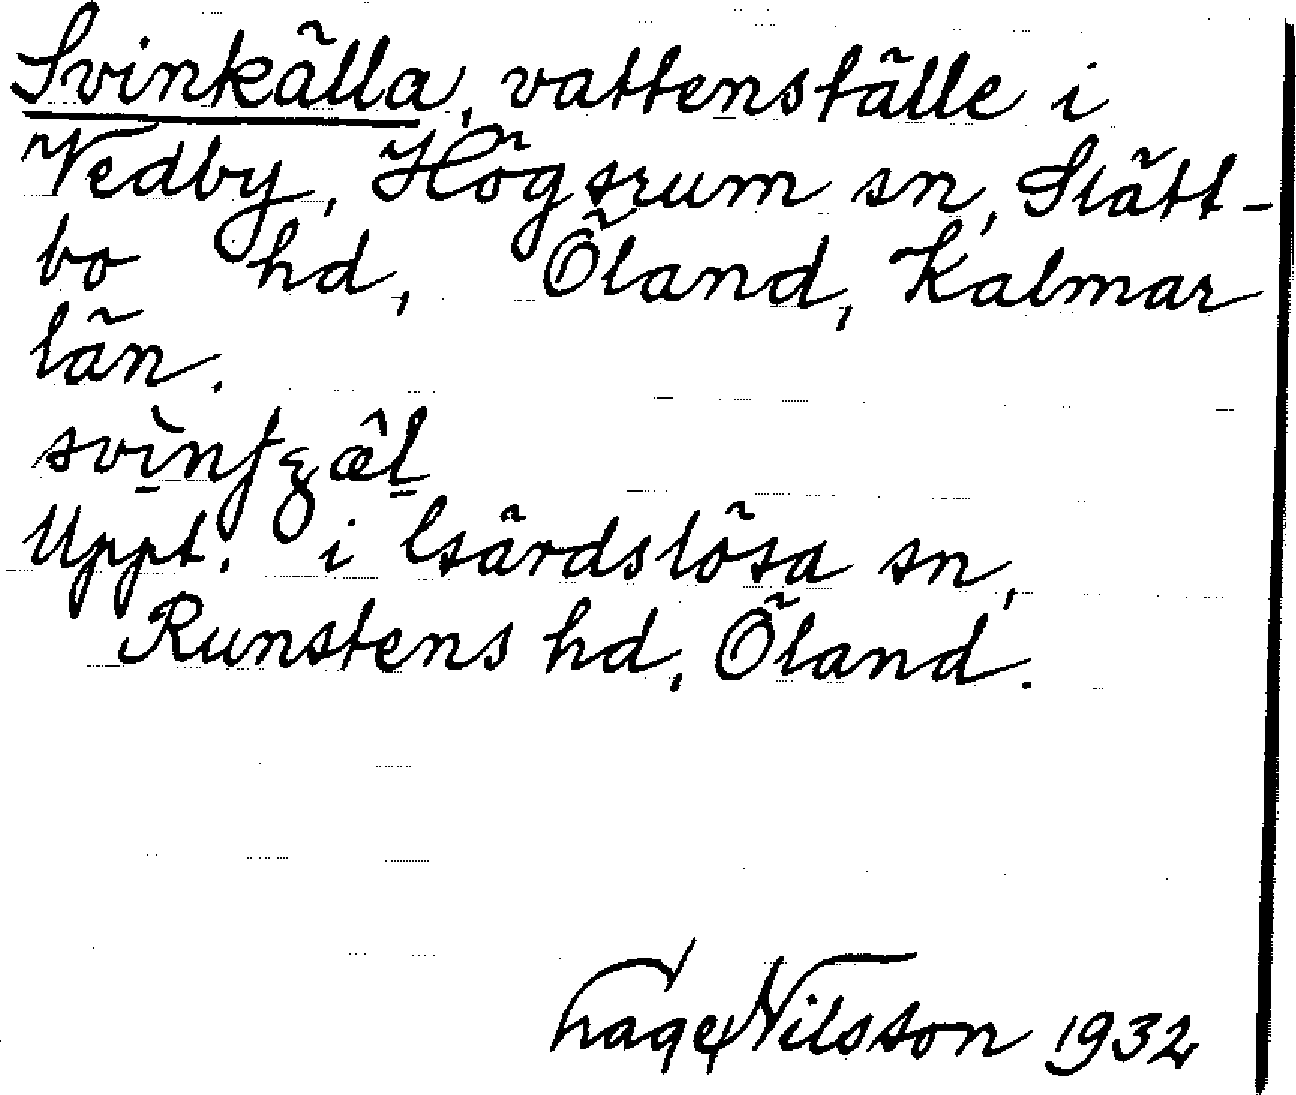 Svinkälla, vattenställe i
Vedby, Högsrum sn, Slätt-
bo hd, Öland, Kalmar
län.
Uppt. i Gärdslösa sn,
Runstens hd, Öland.
Nilsson 1932